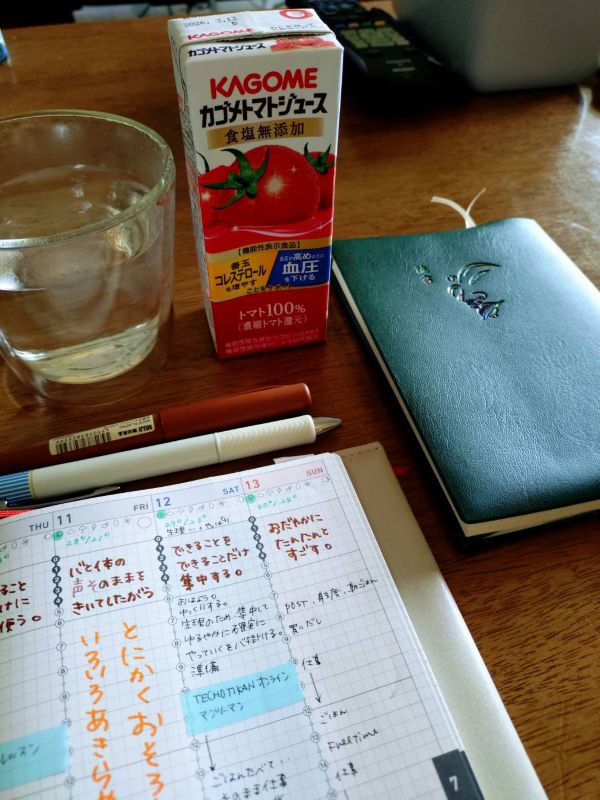 2026. 3.13
KAGOME
KAGOME
カゴメトマトジュース
食塩無添加
【機能性表示食品】
善玉
コレステロール
を増やす
ことをサポート
血圧が高めの方の
血圧
を下げる
トマト100%
(濃縮トマト還元)
MUJI 無印良品
THU
11
FRI
12
SAT
13
SUN
こと
だけに
使う。
心と体の
声そのままを
きいてしたがう
とにかくおそろ
いろいろあきらめ
レッスン
29°/23°
できることを
できることだけ
集中する。
おはよう。
ゆっくりする。
生理のため、集中して
ゆるやかに確実に
やっていくを心掛ける。
準備
TECHOTIKAN オンライン
マンツーマン
ごはんたべて..
そのまま仕事
30°/24°
おだやかに
たんたんと
すごす。
POST、身支度、朝ごはん
買いだし
仕事
ごはん
Free time
仕事
7